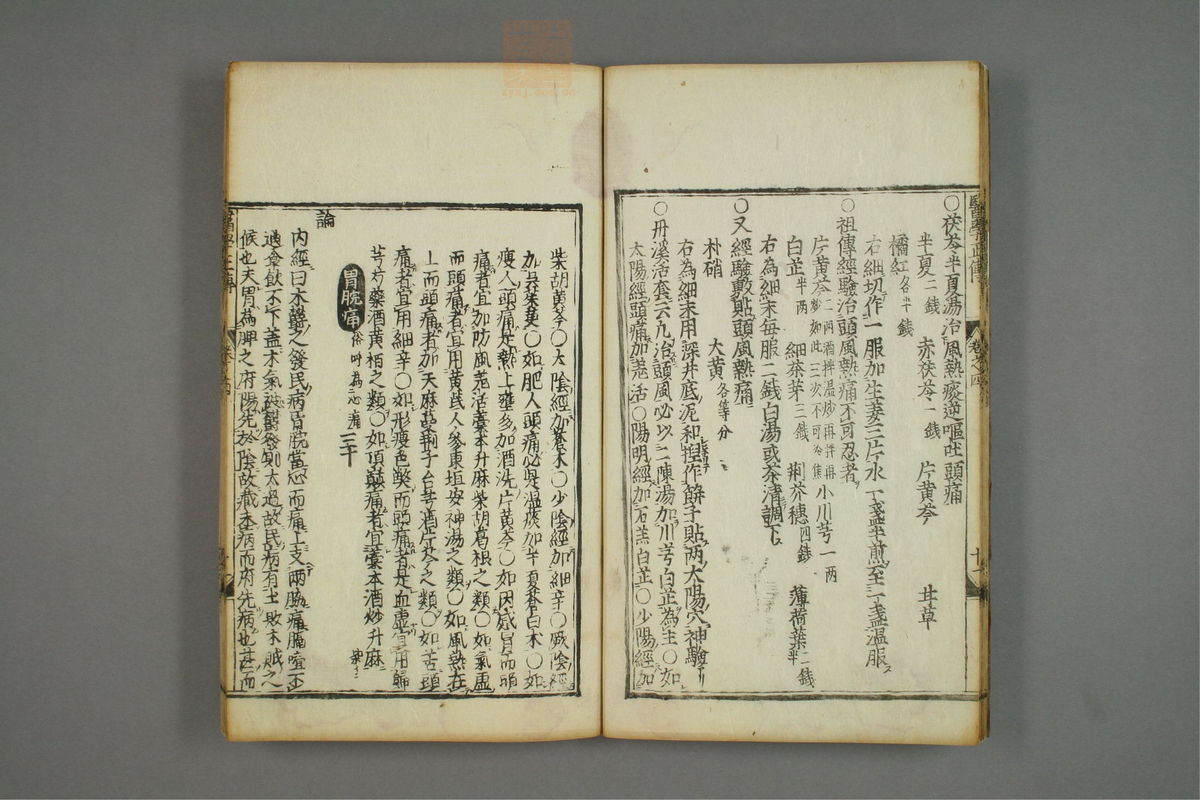 醫學正傳 卷之四 十
○茯苓半夏湯治風熱痰逆嘔吐頭痛
半夏二錢 赤茯苓一錢 片黃芩 甘草
橘紅各半錢
右細切作一服加生姜三片水一盞半煎至一盞溫服
○祖傳經驗治頭風熱痛不可忍者
片黃芩一兩酒拌溫炒再拌再炒如此三次不可令焦 小川芎一兩
白芷半兩 細茶芽三錢 荆芥穗四錢 薄荷葉二錢半
右為細末每服二錢白湯或茶清調下
○又經驗敷貼頭風熱痛
朴硝 大黃各等分
右為細末用深井底泥和捏作餅子貼兩太陽穴神驗
○丹溪活套云凡治頭風必以二陳湯加川芎白芷為主○如
太陽經頭痛加羌活○陽明經加石羔白芷○少陽經加
柴胡黃芩○太陰經加蒼朮○少陰經加細辛○厥陰經
加吳茱萸○如肥人頭痛必是濕痰加半夏蒼白朮○如
瘦人頭痛是熱上壅多加酒洗片黃芩○如因感冒而頭
痛者宜加防風羌活藁本升麻柴胡葛根之類○如氣虛
而頭痛者宜用黃芪人參東垣安神湯之類○如風熱在
上而頭痛者加天麻蔓荊子台芎酒片芩之類○如苦頭
痛者宜用細辛○如形瘦色 而頭痛者是血虛宜用歸
芎芍藥酒黃栢之類○如頂巔痛者宜藁本酒炒升麻柴
胃脘痛 俗呼為心痛 二十
論
內經曰木鬱之發民病胃脘當心而痛上支兩脇痛膈咽不
通食飲不下蓋木氣被鬱發則太過故民病有土敗木賊之
候也夫胃為脾之府陽先於陰故藏未病而府先病也甚而
醫學正傳 卷之四